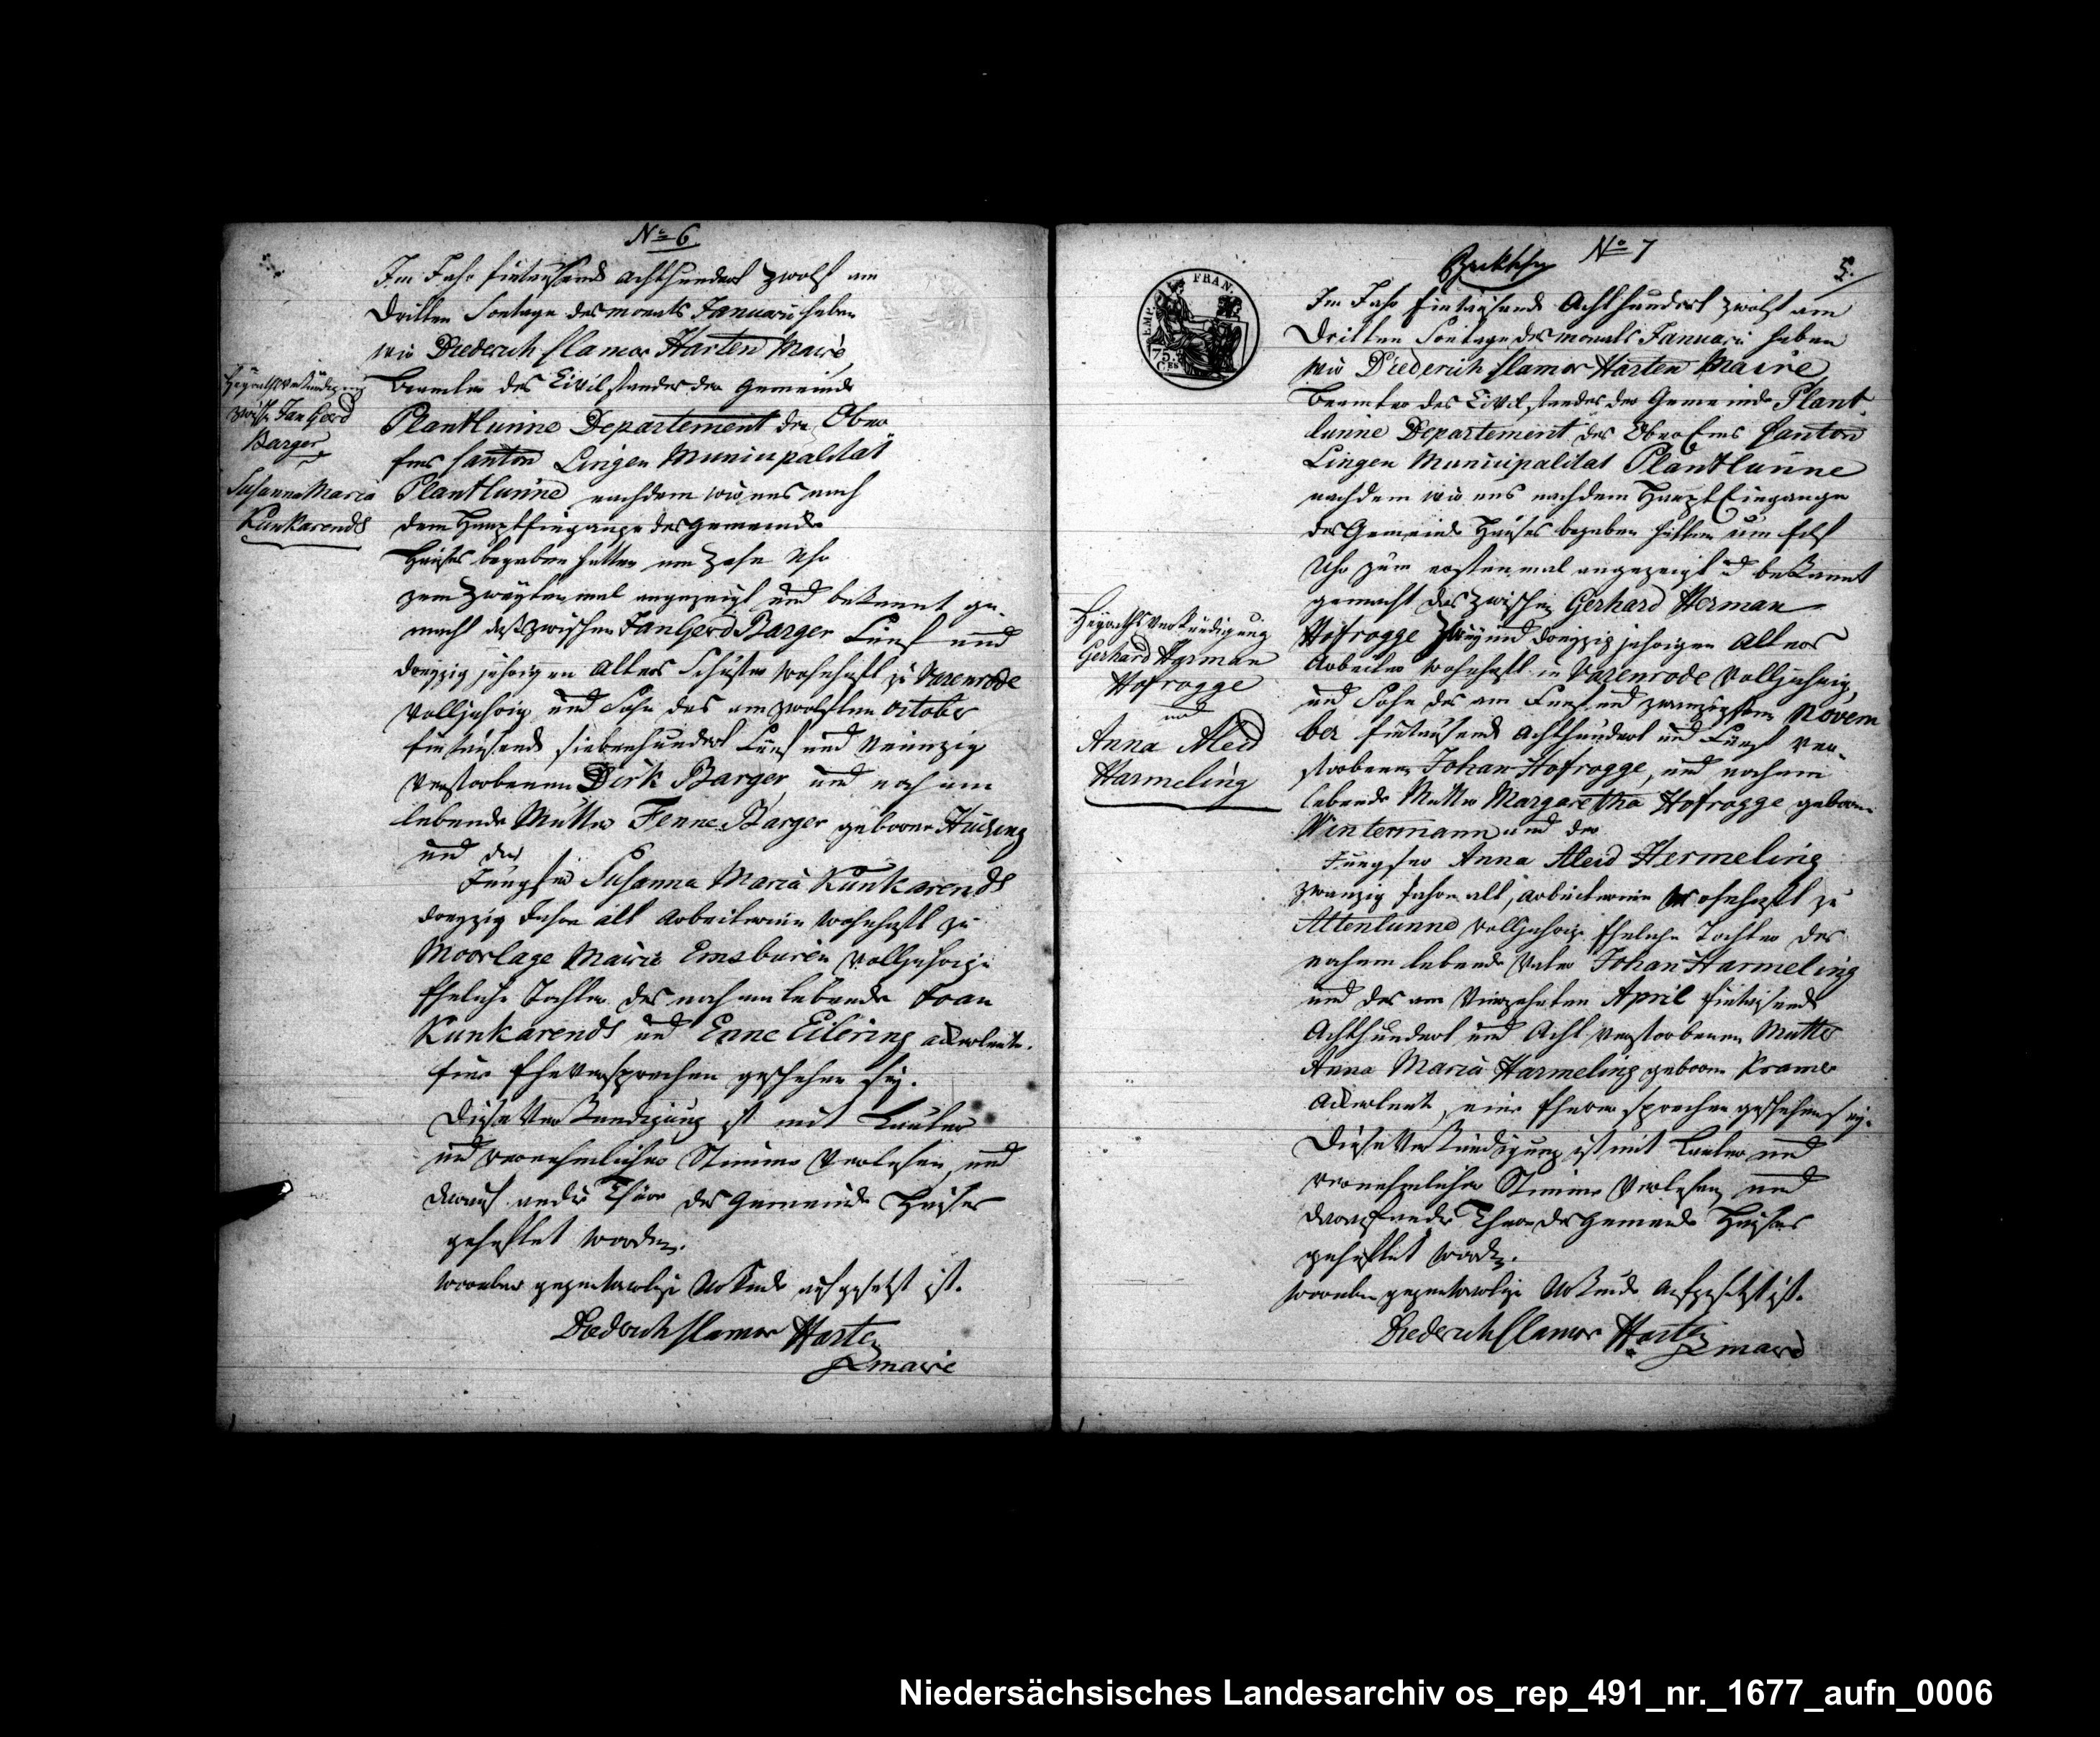 No 6
Im Jahr Eintausend achthundert zwolf am
dritten Sontage des monats Januarii haben
wir Diederich Flamor Harten Maire
Beamter des Civilstandes der Gemeinde
Plantlünne Departement der Ober
Ems Canton Lingen Municipalität
Plantlunne nachdem wir uns nach
dem Haupteingange des Gemeinde
Hauses begeben hatten um Zehn Uhr
zum Zweyten mal angezeigt und bekannt ge-
macht daß zwischen Jan Gerd Barger Fünf und
dreyzig jährigen Alters Schuster wohnhaft zu Varenrode
volljährig und Sohn des am zwolften october
Eintausend siebenhundert Fünf und Neunzig
verstorbenen Dirk Barger und noch am
lebende Mutter Fenne Barger geboren
und der
Jungfer Susanna Maria Kunkarends
dreyzig Jahre alt Arbeiterinn wohnhaft zu
Moorlage Mairie Emsburen volljährige
Eheliche Tochter des noch am lebende Joan
Kunkarends und Enne Eilering ackerleute.
eine Eheversprechen geschehen sey.
Diese Verkündigung ist mit Lauter
und vernehmlicher Stimme Verlesen, und
darauf an die Thüre des Gemeinde Hauses
geheftet worden.
worüber gegenwärtige Urkunde aufgesetzt ist.
Diederich Flamor Harten
maire
Heyraths Verkündigung
zwisch Jan Gerd
Barger
Susanna Maria
Kunkarends
No 7
5.
EMP. FRAN.
75.
CES
Im Jahr Eintausend Achthundert zwolf am
Dritten Sontage des monats Januarii haben
wir Diederich Flamor Harten Maire
Beamter des Civilstandes der Gemeinde Plant
lunne Departement der Ober Ems Canton
Lingen Municipalitat Plantlunne
nachdem wir uns nach dem Haupt Eingange
des Gemeinde Hauses begeben hatten um Elf
Uhr zum ersten mal angezeigt und bekannt
gemacht das zwischen Gerhard Herman
Hofrogge Zwey und dreyzig jahrigen Alters
Arbeiter wohnhaft in Varenrode Volljahrig,
und Sohn des am Funf und zwanzigsten Novem
ber Eintausend achthundert und Funf ver-
storbenen Johan Hofrogge, und noch am
lebende Mutter Margaretha Hofrogge geboren
Wintermann und der
Jungfer Anna Aleid Hermeling
zwanzig Jahre alt, Arbeiterinn wohnhaft zu
Altenlunne volljahrige Eheliche Tochter des
noch am lebende Vater Johan Harmeling
und der am Vierzehnten April Eintausend
Achthundert und Acht verstorbenen Mutter
Anna Maria Harmeling geboren Kramer
Ackerleute, eine Eheversprechen geschehen sey.
Diese Verkündigung ist mit Lauter und
vernehmlicher Stimme Verlesen und
darauf an die Thüre des Gemeinde Hauses
geheftet worden.
worüber gegenwärtige Urkunde aufgesetzt ist.
Diederich Flamor Harten maire
Heyraths Verkündigung
Gerhard Herman
Hofrogge
und
Anna Aleid
Harmeling
Niedersächsisches Landesarchiv os_rep_491_nr._1677_aufn_0006